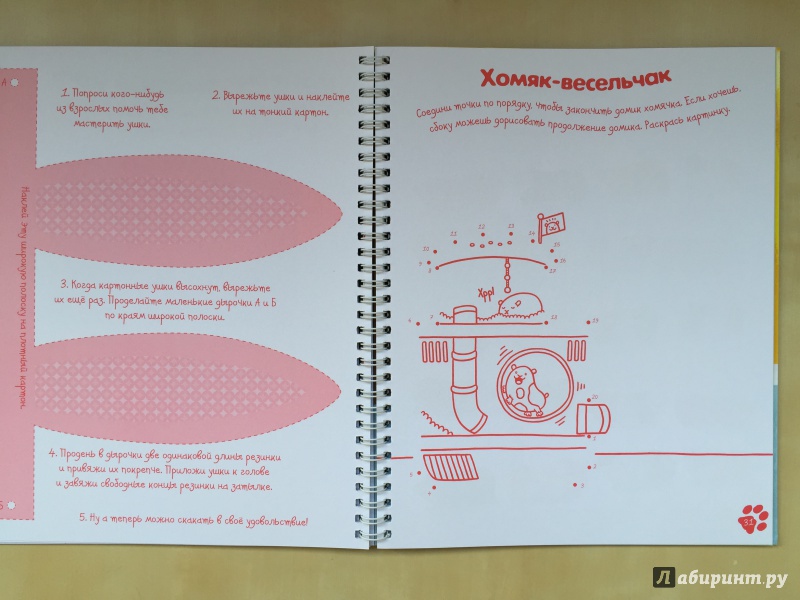 А
1. Попроси кого-нибудь
из взрослых помочь тебе
мастерить ушки.
2. Вырежьте ушки и наклейте
их на тонкий картон.
Наклей эту широкую полоску на плотный картон.
3. Когда картонные ушки высохнут, вырежьте
их ещё раз. Проделайте маленькие дырочки А и Б
по краям широкой полоски.
4. Продень в дырочки две одинаковой длины резинки
и привяжи их покрепче. Приложи ушки к голове
и завяжи свободные концы резинки на затылке.
Б
5. Ну а теперь можно скакать в своё удовольствие!
Хомяк-весельчак
Соедини точки по порядку, чтобы закончить домик хомячка. Если хочешь,
сбоку можешь дорисовать продолжение домика. Раскрась картинку.
Хрр!
31
Лабиринт.ру